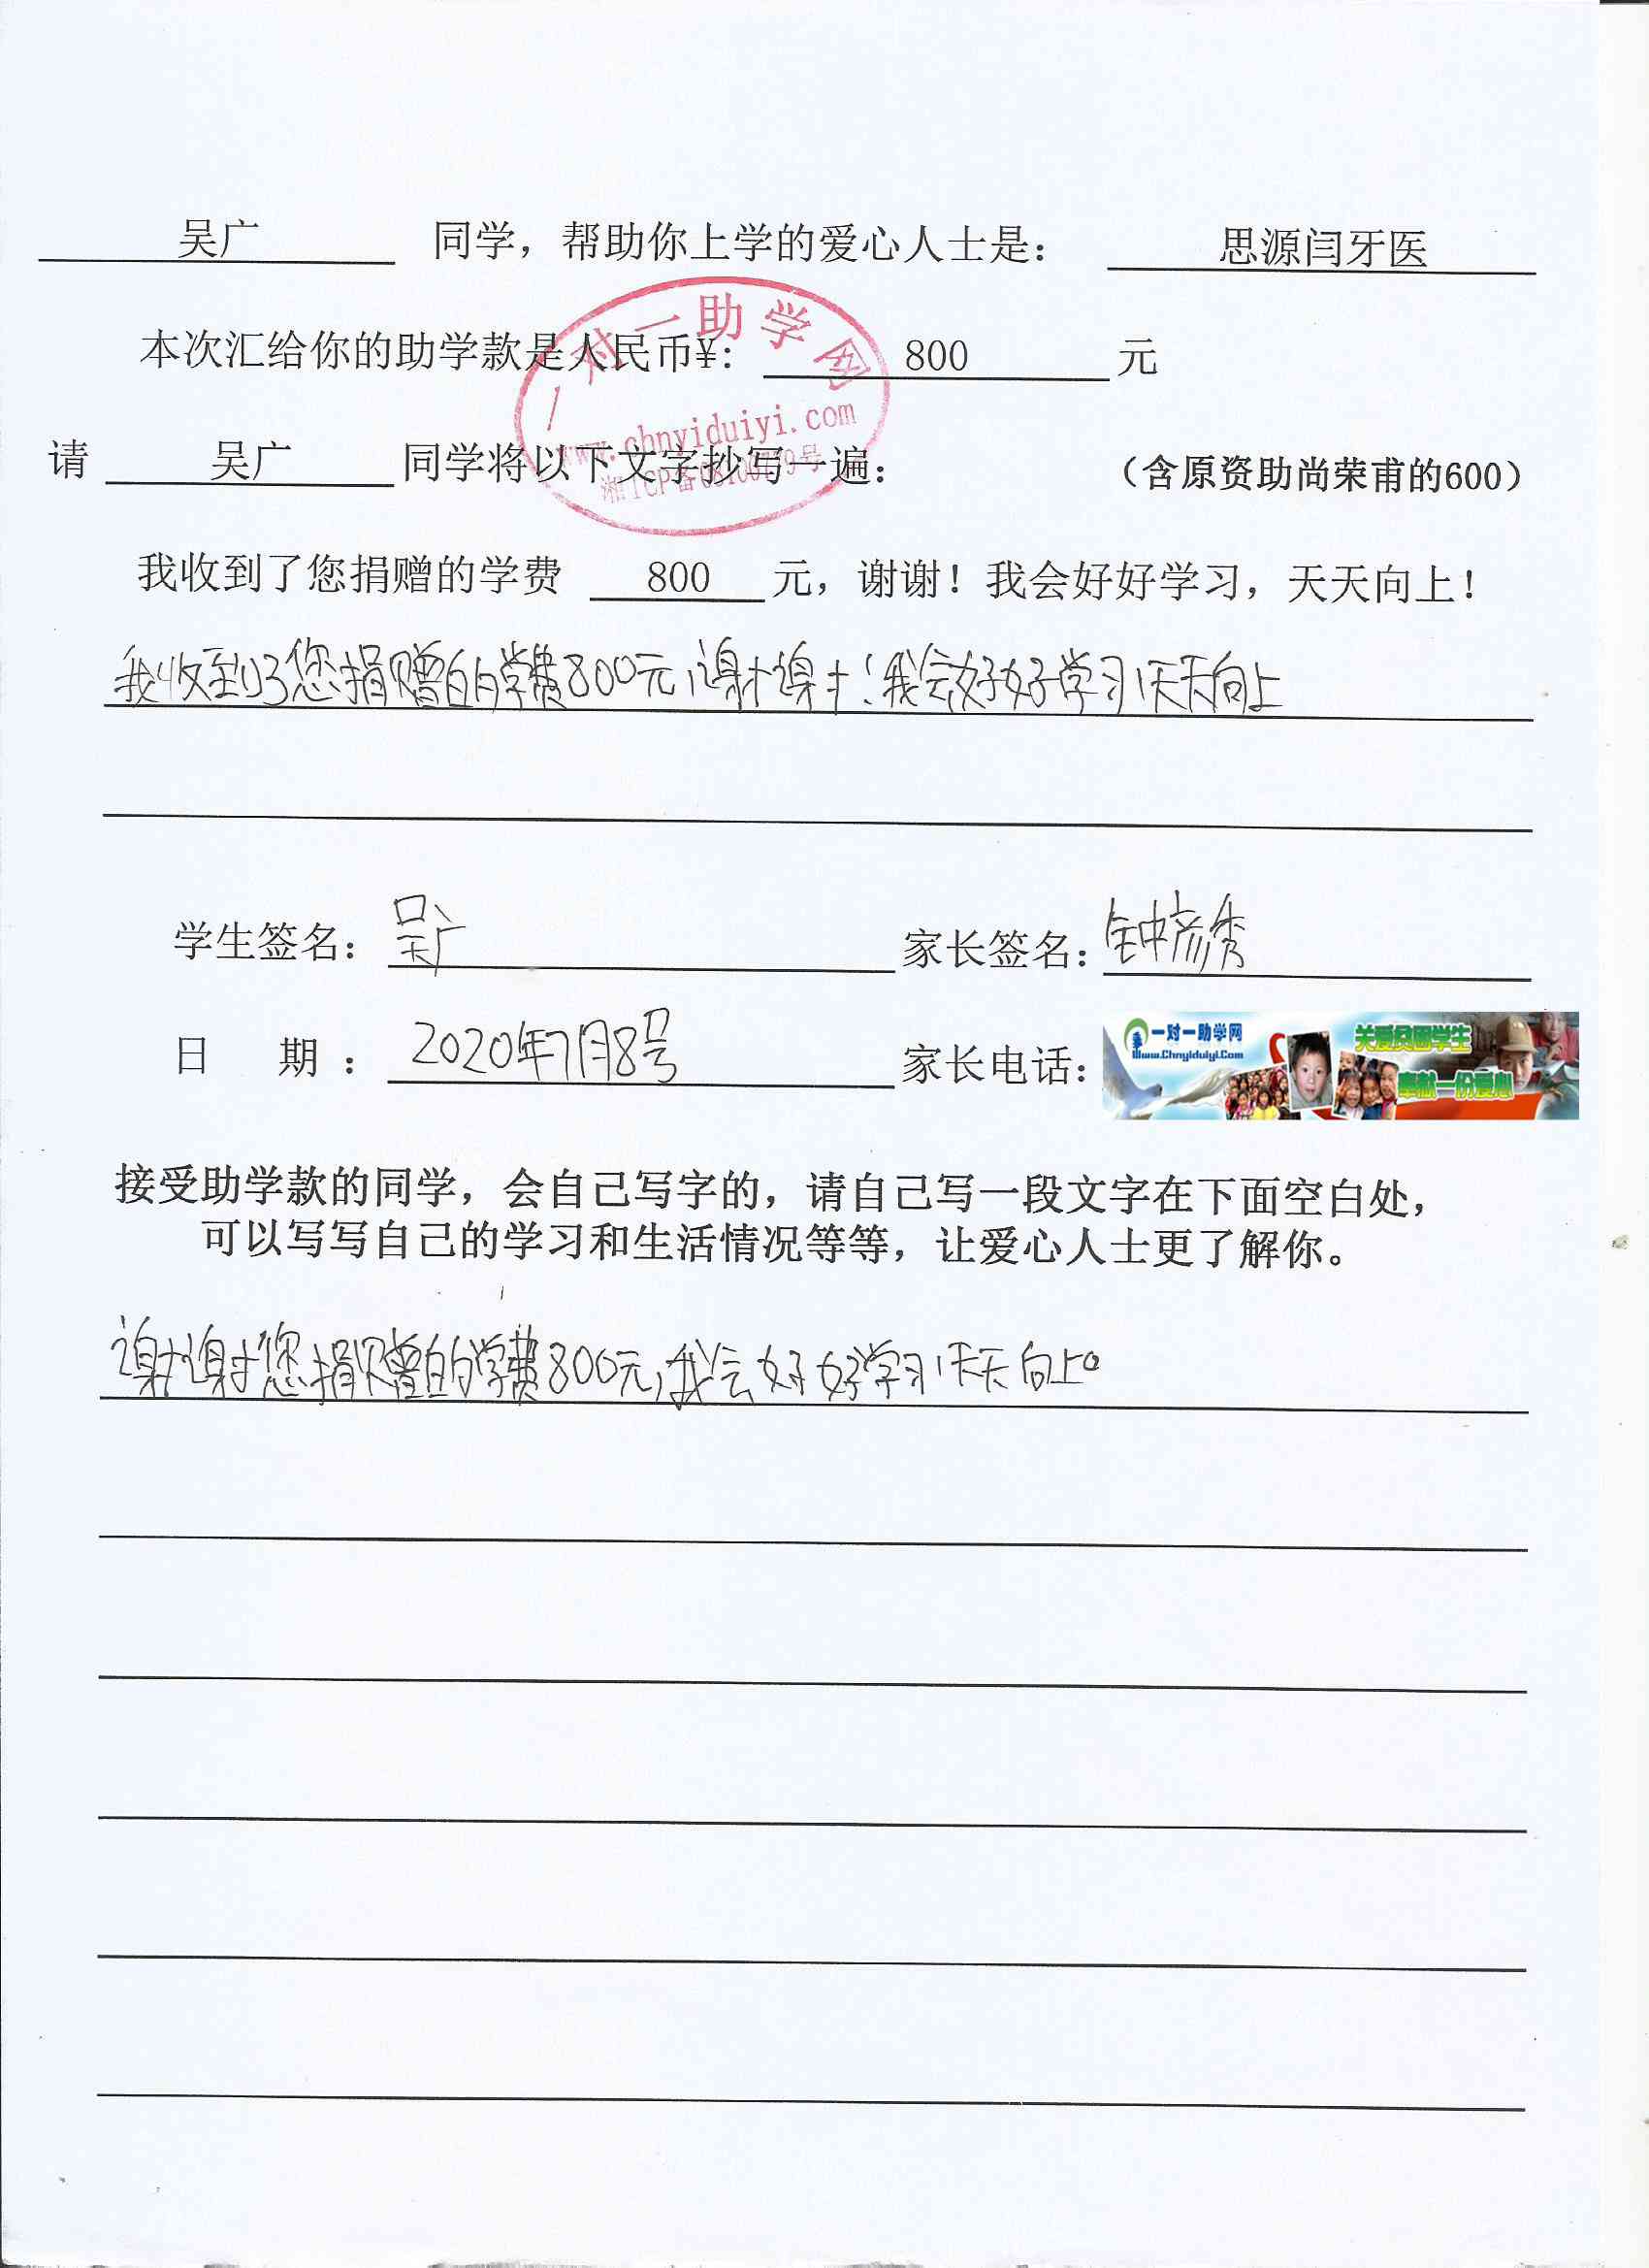 吴广 同学，帮助你上学的爱心人士是： 思源闫牙医
本次汇给你的助学款是人民币¥： 800 元
一对一助学网
www.chnyiduiyi.com
请 吴广 同学将以下文字抄写一遍： （含原资助尚荣甫的600）
我收到了您捐赠的学费 800 元，谢谢！我会好好学习，天天向上！
我收到了您捐赠的学费800元，谢谢！我会好好学习，天天向上
学生签名：吴广 家长签名：钟彦秀
日 期：2020年7月8号 家长电话：
一对一助学网
Www.Chnyiduiyi.Com
关爱贫困学生
奉献一份爱心
接受助学款的同学，会自己写字的，请自己写一段文字在下面空白处，
可以写写自己的学习和生活情况等等，让爱心人士更了解你。
谢谢您捐赠的学费800元，我会好好学习，天天向上。